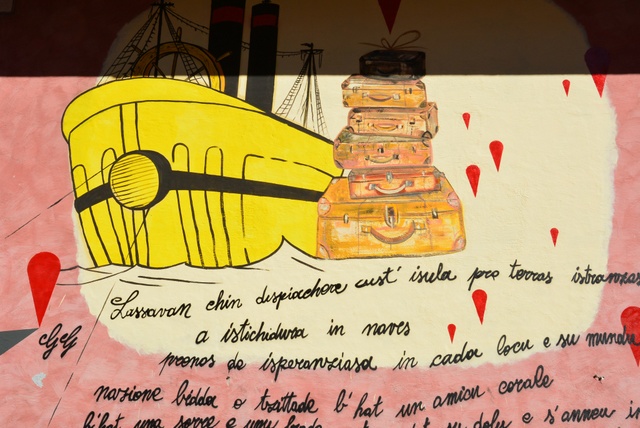 Lassavan chin dispiachere cust' isula pro terras istranzas
a istichidura in naves
GgG
prenos de isperanziasa in cada locu e su mundu
nazione bidda o trattade b'hat un amicu corale
b'hat una sorre e unu su dolu e s'anneu in